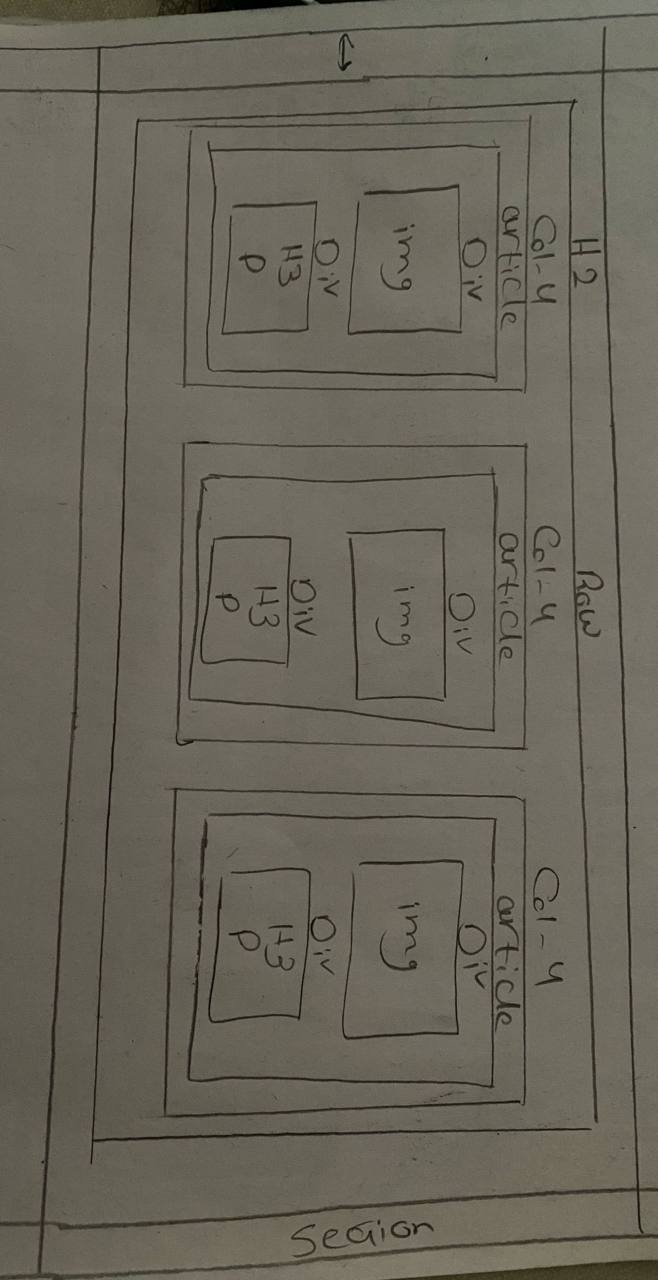 H2
Row
Col-4
article
Div
img
Div
H3
p
Col-4
article
Div
img
Div
H3
p
Col-4
article
Div
img
Div
H3
p
Section